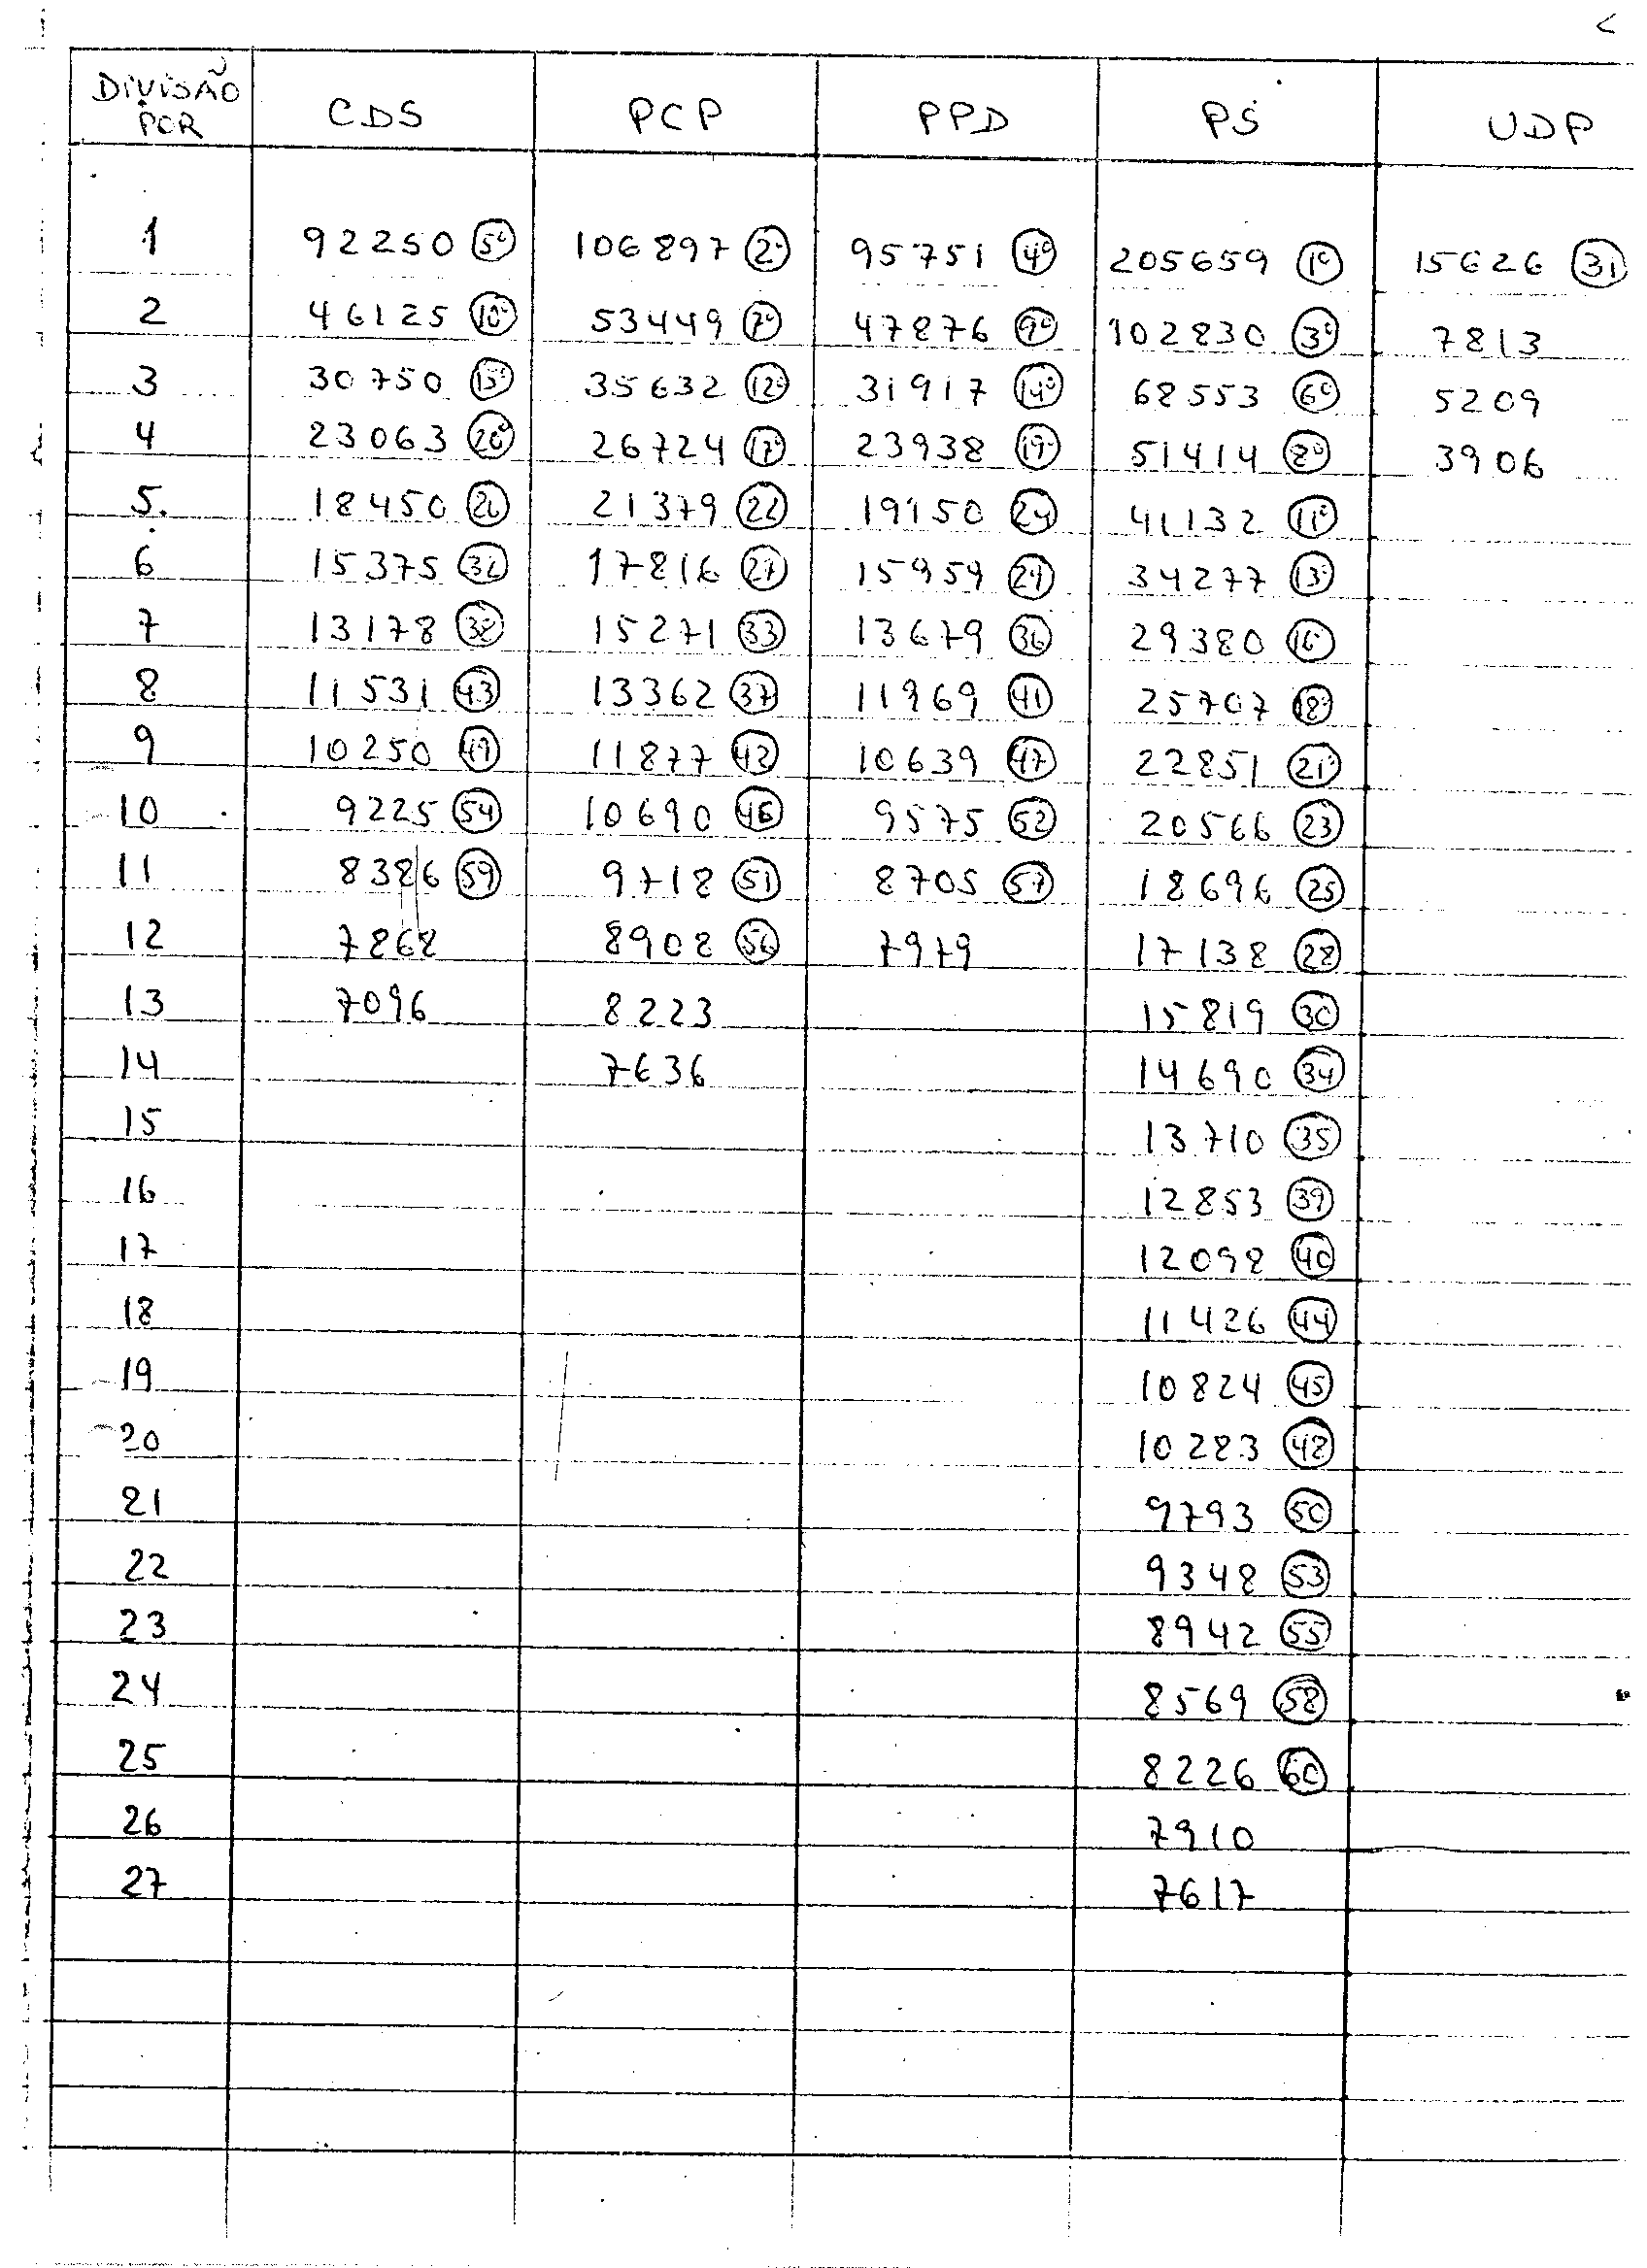 DIVISÃO POR CDS PCP PPD PS UDP
1 92250 5º 106897 2º 95751 4º 205659 1º 15626 31
2 46125 10º 53449 7º 47876 9º 102830 3º 7813
3 30750 15º 35632 12º 31917 14º 68553 6º 5209
4 23063 20º 26724 17º 23938 19º 51414 8º 3906
5. 18450 26 21379 22 19150 24 41132 11º
6 15375 32 17816 27 15959 29 34277 13º
7 13178 38 15271 33 13679 36 29380 16º
8 11531 43 13362 37 11969 41 25707 18º
9 10250 49 11877 42 10639 47 22851 21º
10 9225 54 10690 46 9575 52 20566 23
11 8386 59 9718 51 8705 57 18696 25
12 7868 8908 56 7979 17138 28
13 7096 8223 15819 30
14 7636 14690 34
15 13710 35
16 12853 39
17 12098 40
18 11426 44
19 10824 45
20 10283 48
21 9793 50
22 9348 53
23 8942 55
24 8569 58
25 8226 60
26 7910
27 7617